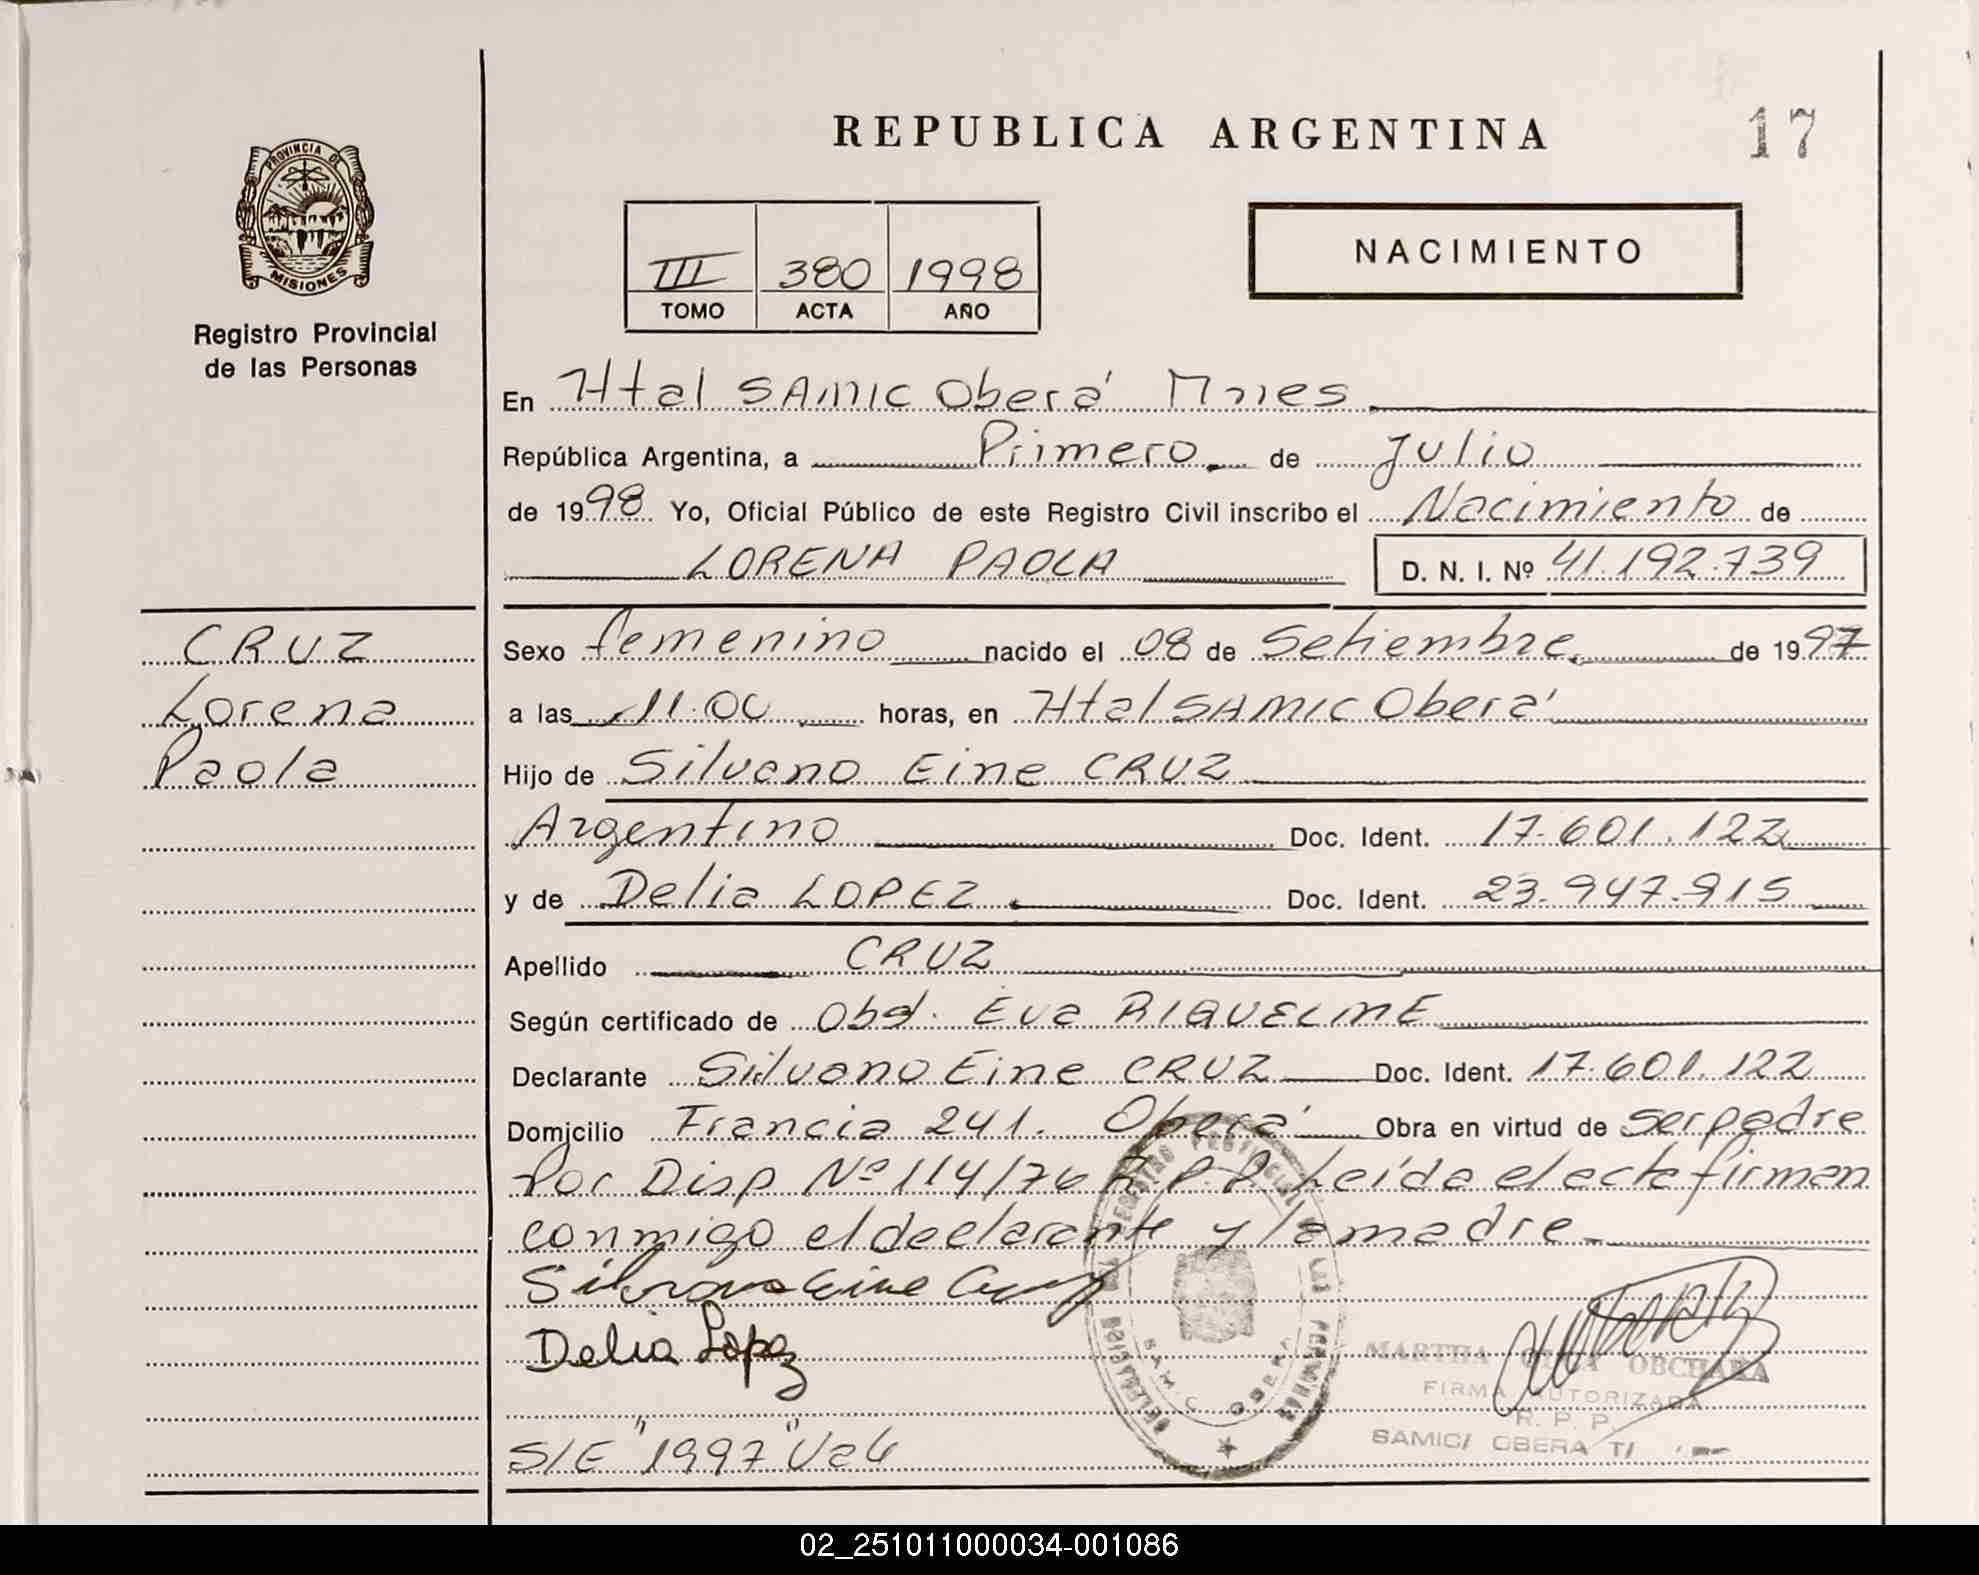 REPUBLICA ARGENTINA
17
PROVINCIA DE
MISIONES
Registro Provincial
de las Personas
III 380 1998
TOMO ACTA AÑO
NACIMIENTO
En Htal SAMIC Oberá Mnes
República Argentina, a Primero de Julio
de 1998 Yo, Oficial Público de este Registro Civil inscribo el Nacimiento de
LORENA PAOLA D. N. I. Nº 41.192.739
CRUZ
Lorena
Paola
Sexo femenino nacido el 08 de Setiembre de 1997
a las 11.00 horas, en Htal SAMIC Oberá
Hijo de Silvano Eine CRUZ
Argentino Doc. Ident. 17.601.122
y de Delia LOPEZ Doc. Ident. 23.947.915
Apellido CRUZ
Según certificado de Obst. Eva RIQUELME
Declarante Silvano Eine CRUZ Doc. Ident. 17.601.122
Domicilio Francia 241. Oberá Obra en virtud de ser padre
Por Disp Nº 114/76 R.P.P. Leída el acta firman
conmigo el declarante y la madre
Silvano Eine Cruz
Delia Lopez
MARTHA OBCHARA
FIRMA AUTORIZADA
R. P. P.
SAMIC/ OBERA
S/E "1997" Vale
SAMIC OBERA
02_251011000034-001086